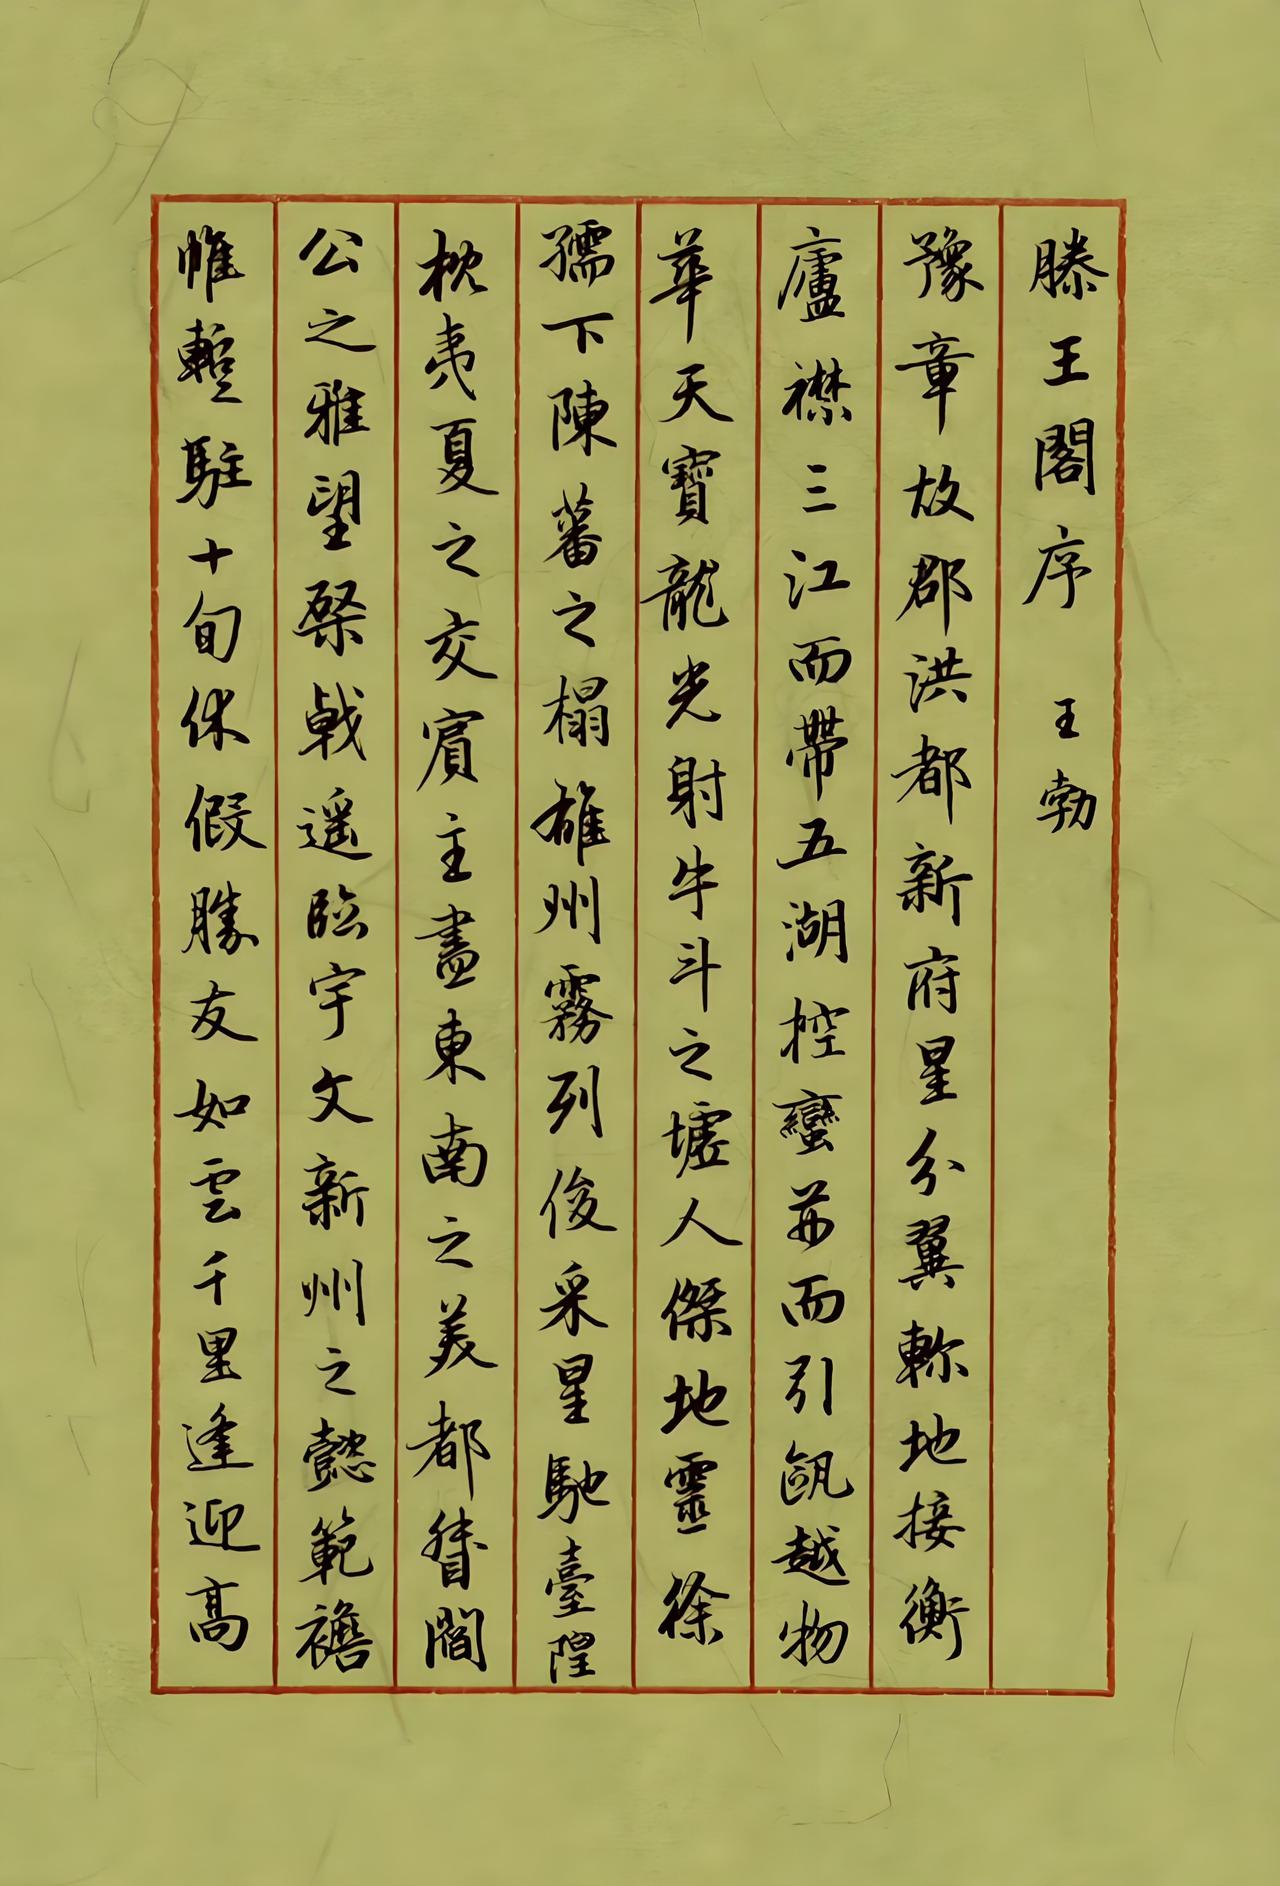 滕王閣序 王勃
豫章故郡洪都新府星分翼軫地接衡
廬襟三江而帶五湖控蠻荊而引甌越物
華天寶龍光射牛斗之墟人傑地靈徐
孺下陳蕃之榻雄州霧列俊采星馳臺隍
枕夷夏之交賓主盡東南之美都督閻
公之雅望棨戟遥臨宇文新州之懿範襜
帷暫駐十旬休假勝友如雲千里逢迎高